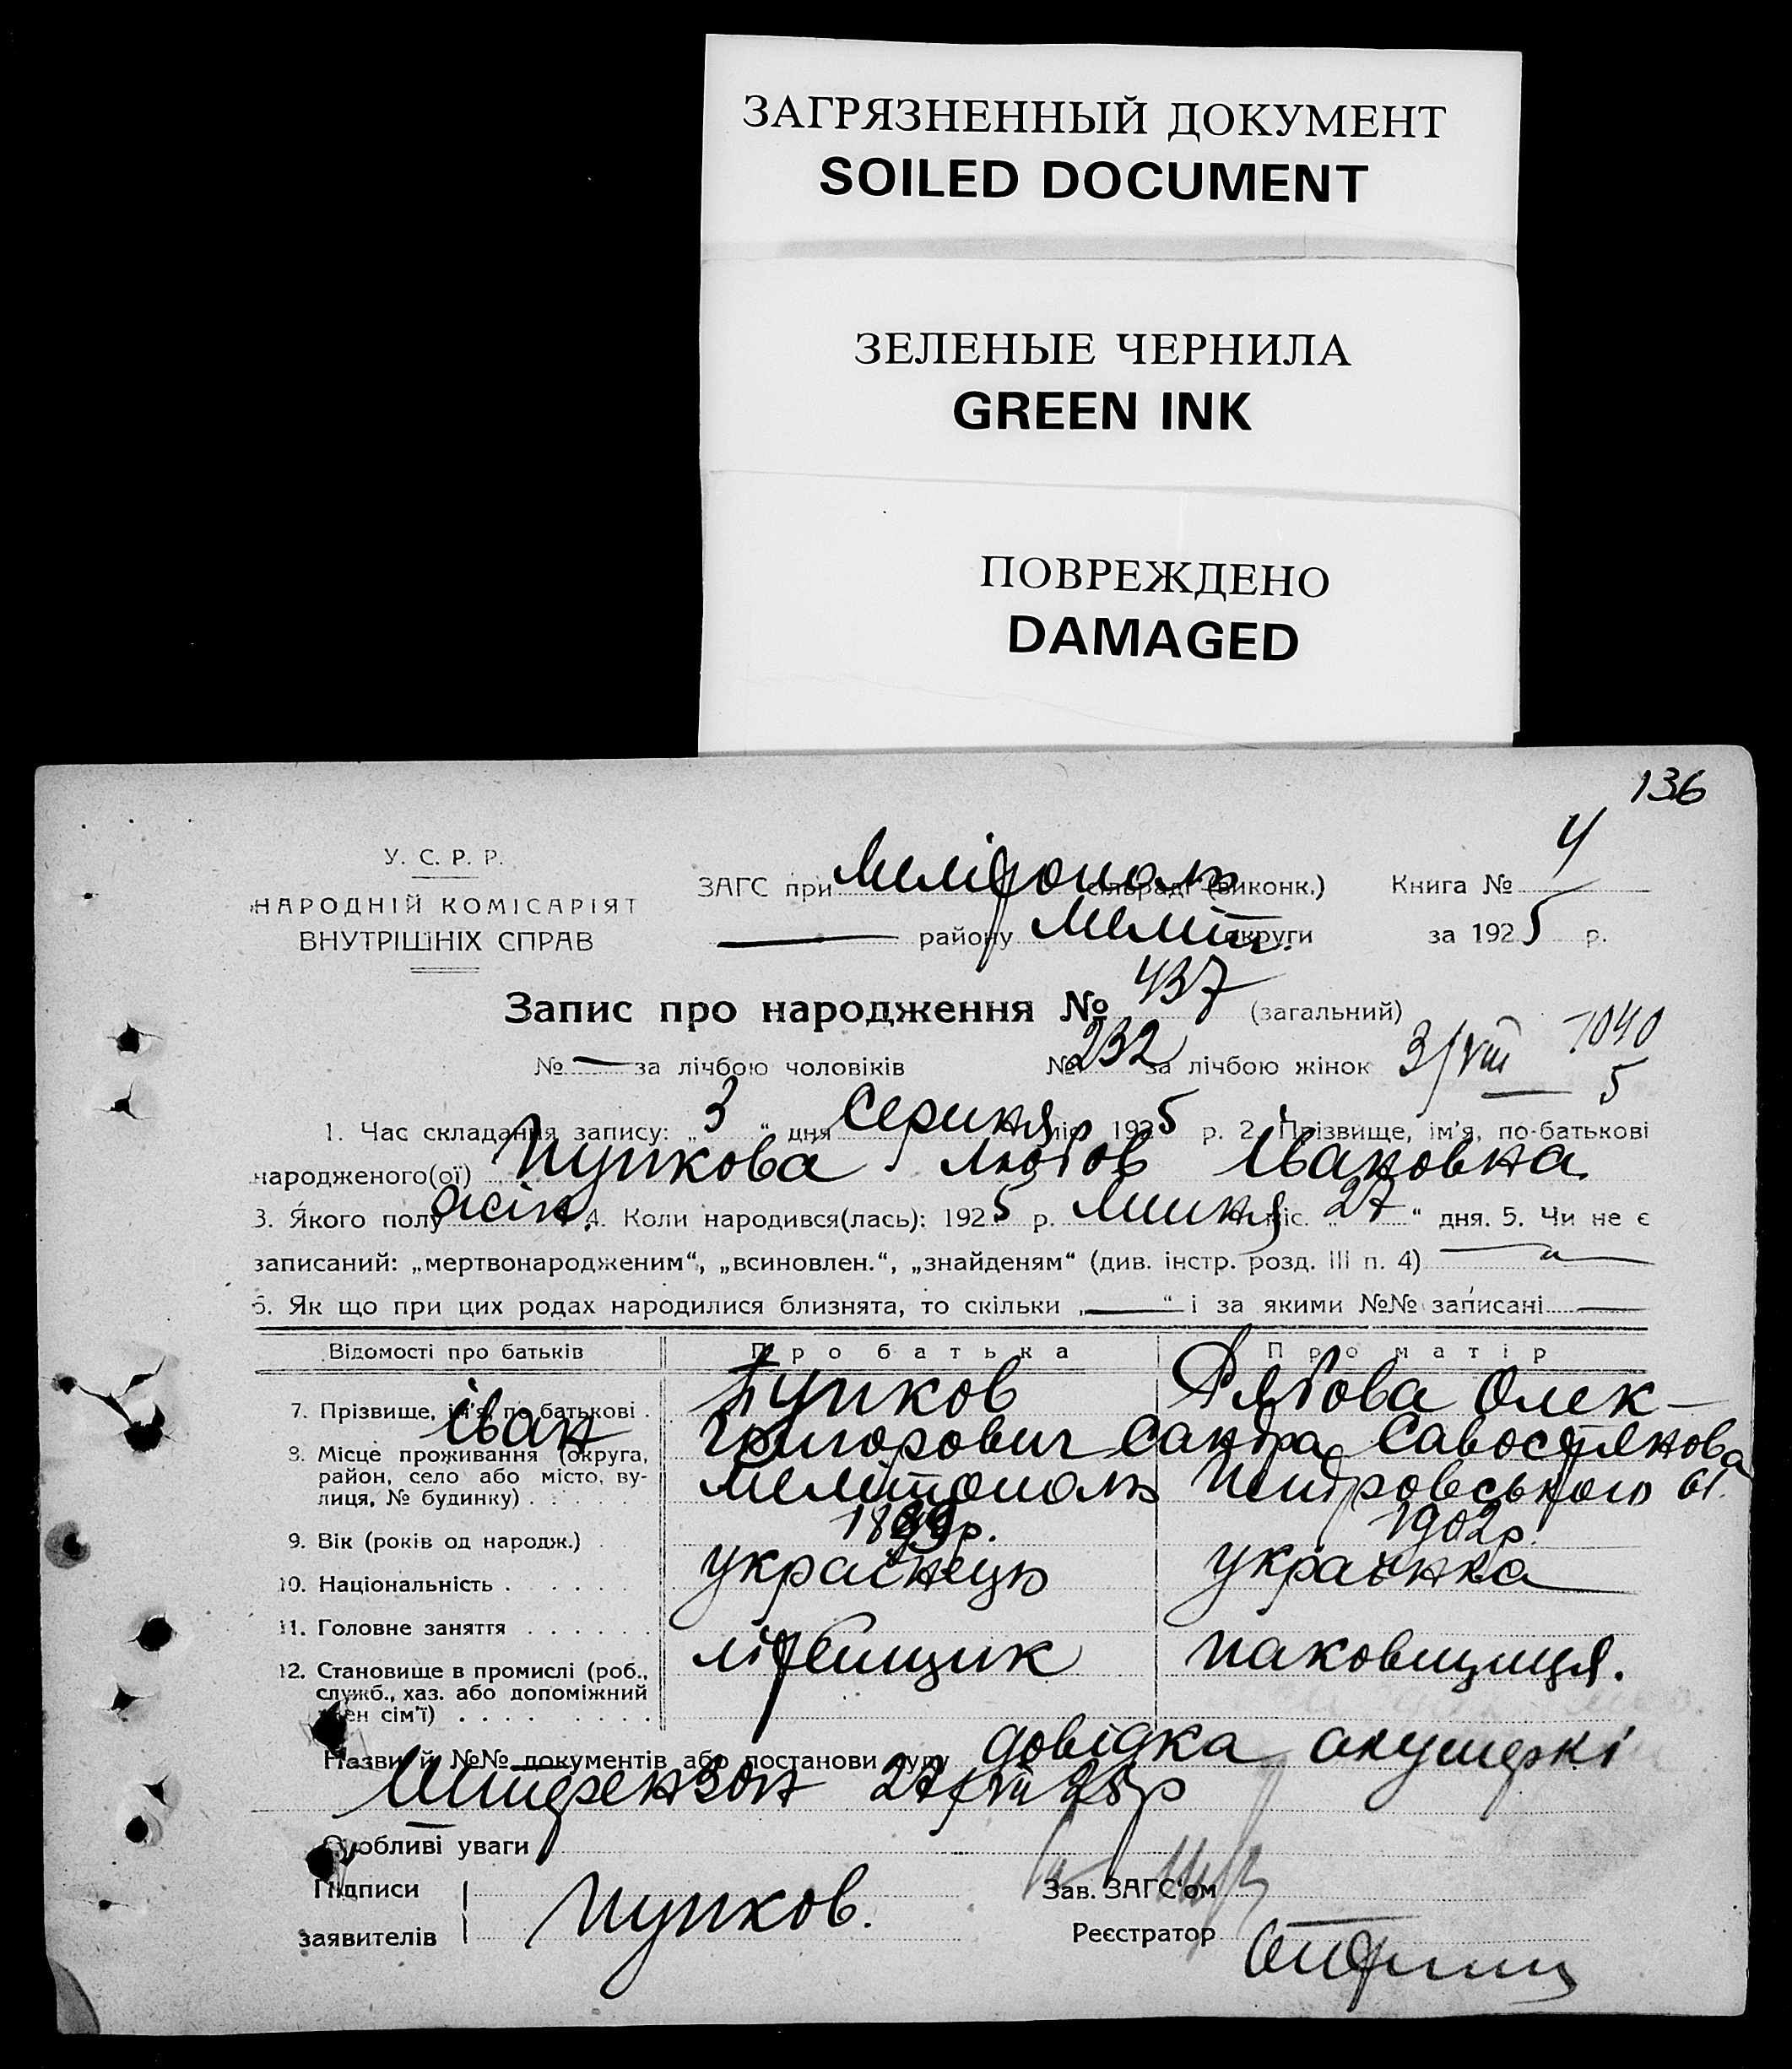 ЗАГРЯЗНЕННЫЙ ДОКУМЕНТ
SOILED DOCUMENT
ЗЕЛЕНЫЕ ЧЕРНИЛА
GREEN INK
ПОВРЕЖДЕНО
DAMAGED
136
У. С. Р. Р.
НАРОДНІЙ КОМІСАРІЯТ
ВНУТРІШНІХ СПРАВ
ЗАГС при Мелітополь сільраді (виконк.) Книга № 4
— району Меліт. округи за 1925 р.
Запис про народження № 437 (загальний)
№ — за лічбою чоловіків № 232 за лічбою жінок 3/VIII 1040
5
1. Час складання запису: „3“ дня Серпня міс. 1925 р. 2. Прізвище, ім'я, по-батькові
народженого(ої) Пупкова Любов Івановна.
3. Якого полу жін. 4. Коли народився(лась): 1925 р. Липня міс. „27“ дня. 5. Чи не є
записаний: „мертвонародженим“, „всиновлен.“, „знайденям“ (див. інстр. розд. III п. 4)
6. Як що при цих родах народилися близнята, то скільки „—“ і за якими №№ записані —
Відомості про батьків Про батька Про матір
7. Прізвище, ім'я, по батькові . Пупков Рябова Олек-
Іван Григорович сандра Савостянова
8. Місце проживання (округа,
район, село або місто, ву-
лиця, № будинку) . . . . . Мелітополь Петровського 61.
9. Вік (років од народж.) . 1899р. 1902р.
10. Національність . . . . . . українець українка
11. Головне заняття . . . . . .
12. Становище в промислі (роб.,
служб., хаз. або допоміжний
член сім'ї) . . . . . . . . ліфтищик паковщиця.
Назви й №№ документів або постанови суду довідка акушеркі
27/VII 25р
Особливі уваги
Підписи
заявителів Пупков.
Зав. ЗАГС'ом
Реєстратор